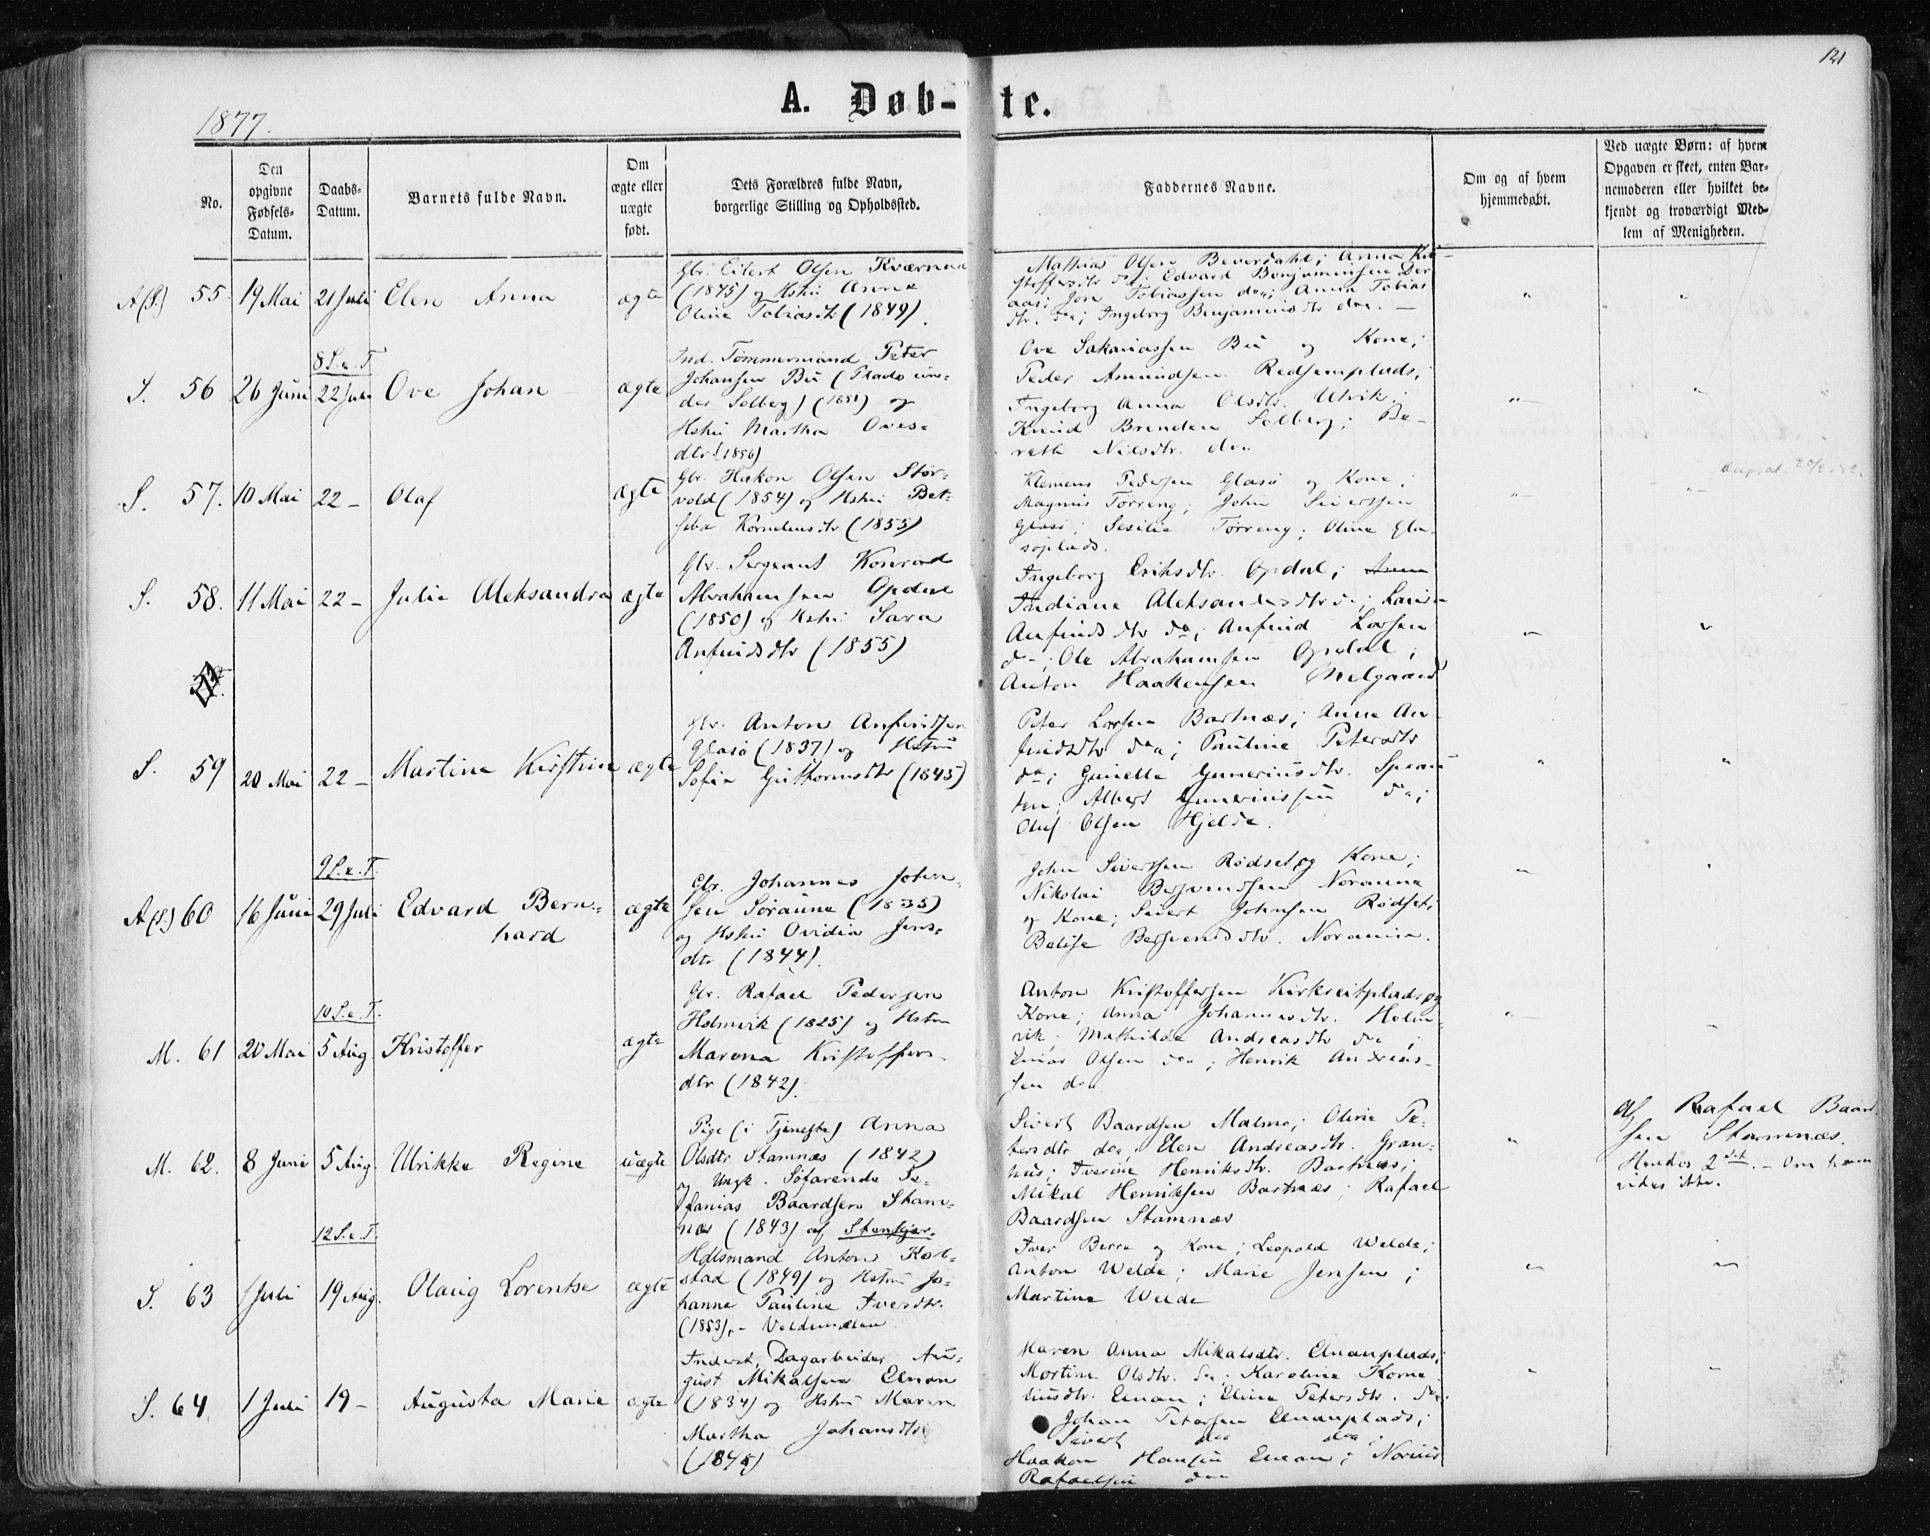 121
1877.
A. Døb-te.
No.
Den
opgivne
Fødsels-
Datum.
Daabs-
Datum.
Barnets fulde Navn.
Om
ægte eller
uægte
født.
Dets Forældres fulde Navn,
borgerlige Stilling og Opholdssted.
Faddernes Navne.
Om og af hvem
hjemmedøbt.
Ved uægte Børn: af hvem
Opgaven er skeet, enten Bar-
nemoderen eller hvilket be-
kjendt og troværdigt Med-
lem af Menigheden.
A(S.) 55. 19 Mai 21 Juli Elen Anna ægte
Gbr. Eilert Olsen Kværnød
(1845) og Hstru Anna
Oline Tobiasdtr (1849).
Mathias Olsen Beverdahl; Anna Kri-
stoffersdtr do; Edvard Benjaminsen Der
aas; Jon Tobiassen doa; Anna Tobias
dtr. doa; Ingeborg Benjaminsdtr doa. —
8 S. e. T.
S. 56 26 Juni 22 Juli Ove Johan ægte
Ind. Tømmermand Peter
Johansen Bu (Plads un-
der Solberg) (1851) og
Hstru Martha Oves-
dtr (1856)
Ove Sakariassen Bu og Kone;
Peder Amundsen Redsemplads;
Ingeborg Anna Olsdtr. Utvik;
Knud Brenden Solberg; Be-
reth Nilsdtr. doa
S. 57. 10 Mai 22 — Olaf ægte
Gbr. Hakon Olsen Stor-
vold (1854) og Hstru Bet-
seba Kornelusdtr (1855)
Klemens Pedersen Glasø og Kone;
Magnus Tørreng; John Sivertsen
Glasø; Sesilie Tørreng; Oline Gla-
søplads.
S. 58. 11 Mai 22 — Julie Aleksandra ægte
Gbr. Sergeant Konrad
Abrahamsen Opdal
(1850) og Hstru Sara
Anfindsdtr (1855)
Ingeborg Eriksdtr. Opdal; Anna
Indiane Aleksandersdtr do; Lauri-
Anfindsdtr doa; Anfind Larsen
do; Ole Abrahamsen Opdal;
Anton Haakensen Melgaard
S. 59 20 Mai 22 — Martine Kirstine ægte
Gbr. Anton Anfindsen
Glasø (1837) og Hstru
Sofia Guttormsdtr (1845)
Peter Larsen Bartnæs; Anne An-
findsdtr doa; Pauline Petersdtr
doa; Gunelle Guneriusdtr. Sparn
ten; Albert Gunerinssen doa;
Oluf Olsen Hjelde.
9 S. e. T.
A(S.) 60 16 Juni 29 Juli Edvard Bern-
hard ægte
Gbr. Johannes John-
sen Søraune (1835)
og Hstru Ovidia Jens-
dtr (1844).
John Sivertsen Rødset og Kone;
Nikolai Bersvendsen Noraune
og Kone; Sivert Johnsen Rødset;
Betise Bersvendsdtr. Noraune.
10 S. e. T.
M. 61 20 Mai 5 Aug. Kristoffer ægte
Gbr. Rafael Pedersen
Holmvik (1825) og Hstru
Marena Kristoffers-
dtr (1842).
Anton Kristoffersen Kirkreitplads og
Kone; Anna Johannesdtr. Holm-
vik; Mathilde Andreasdtr doa;
Einar Olsen doa; Henrik Andreas-
sen doa
M. 62. 8 Juni 5 Aug. Ulrikke Regine uægte
Pige (i Tjeneste) Anna
Olsdtr Stamnæs (1842)
og Ungk. Søfarende Te-
fanias Baardsen Stam-
næs (1843) af Stenkjær.
Sivert Baardsen Malmo; Oline Pe-
tersdtr doa; Elen Andreasdtr. Gran-
hus; Iverine Henriksdtr. Bartnæs;
Mikal Henriksen Bartnæs; Rafael
Baardsen Stamnæs
Af Rafael Baard-
sen Stamnæs.
Hendes 2det. — Om ham
vides ikke.
12 S. e. T.
S. 63 1 Juli 19 Aug. Olaug Lorentse ægte
Hdlsmand Anton Kol-
stad (1849) og Hstru Jo-
hanne Pauline Iversdtr.
(1853). — Veldemælen
Iver Berre og Kone; Leopold Welde;
Anton Welde; Marie Jensen;
Martine Welde
S. 64. 1 Juli 19 — Augusta Marie ægte
Inderst, Dagarbeider Au-
gust Mikalsen Elnan
(1834) og Hstru Maren
Martha Johansdtr
(1845)
Maren Anna Mikalsdtr. Elnanplads;
Mortine Olsdtr. doa; Karoline Korne
liusdtr. Elnan; Eline Petersdtr. doa
Johan Petersen Elnanplads;
Sivert doa doa;
Haakon Hansen Elnan; Norius
Rafaelsen doa